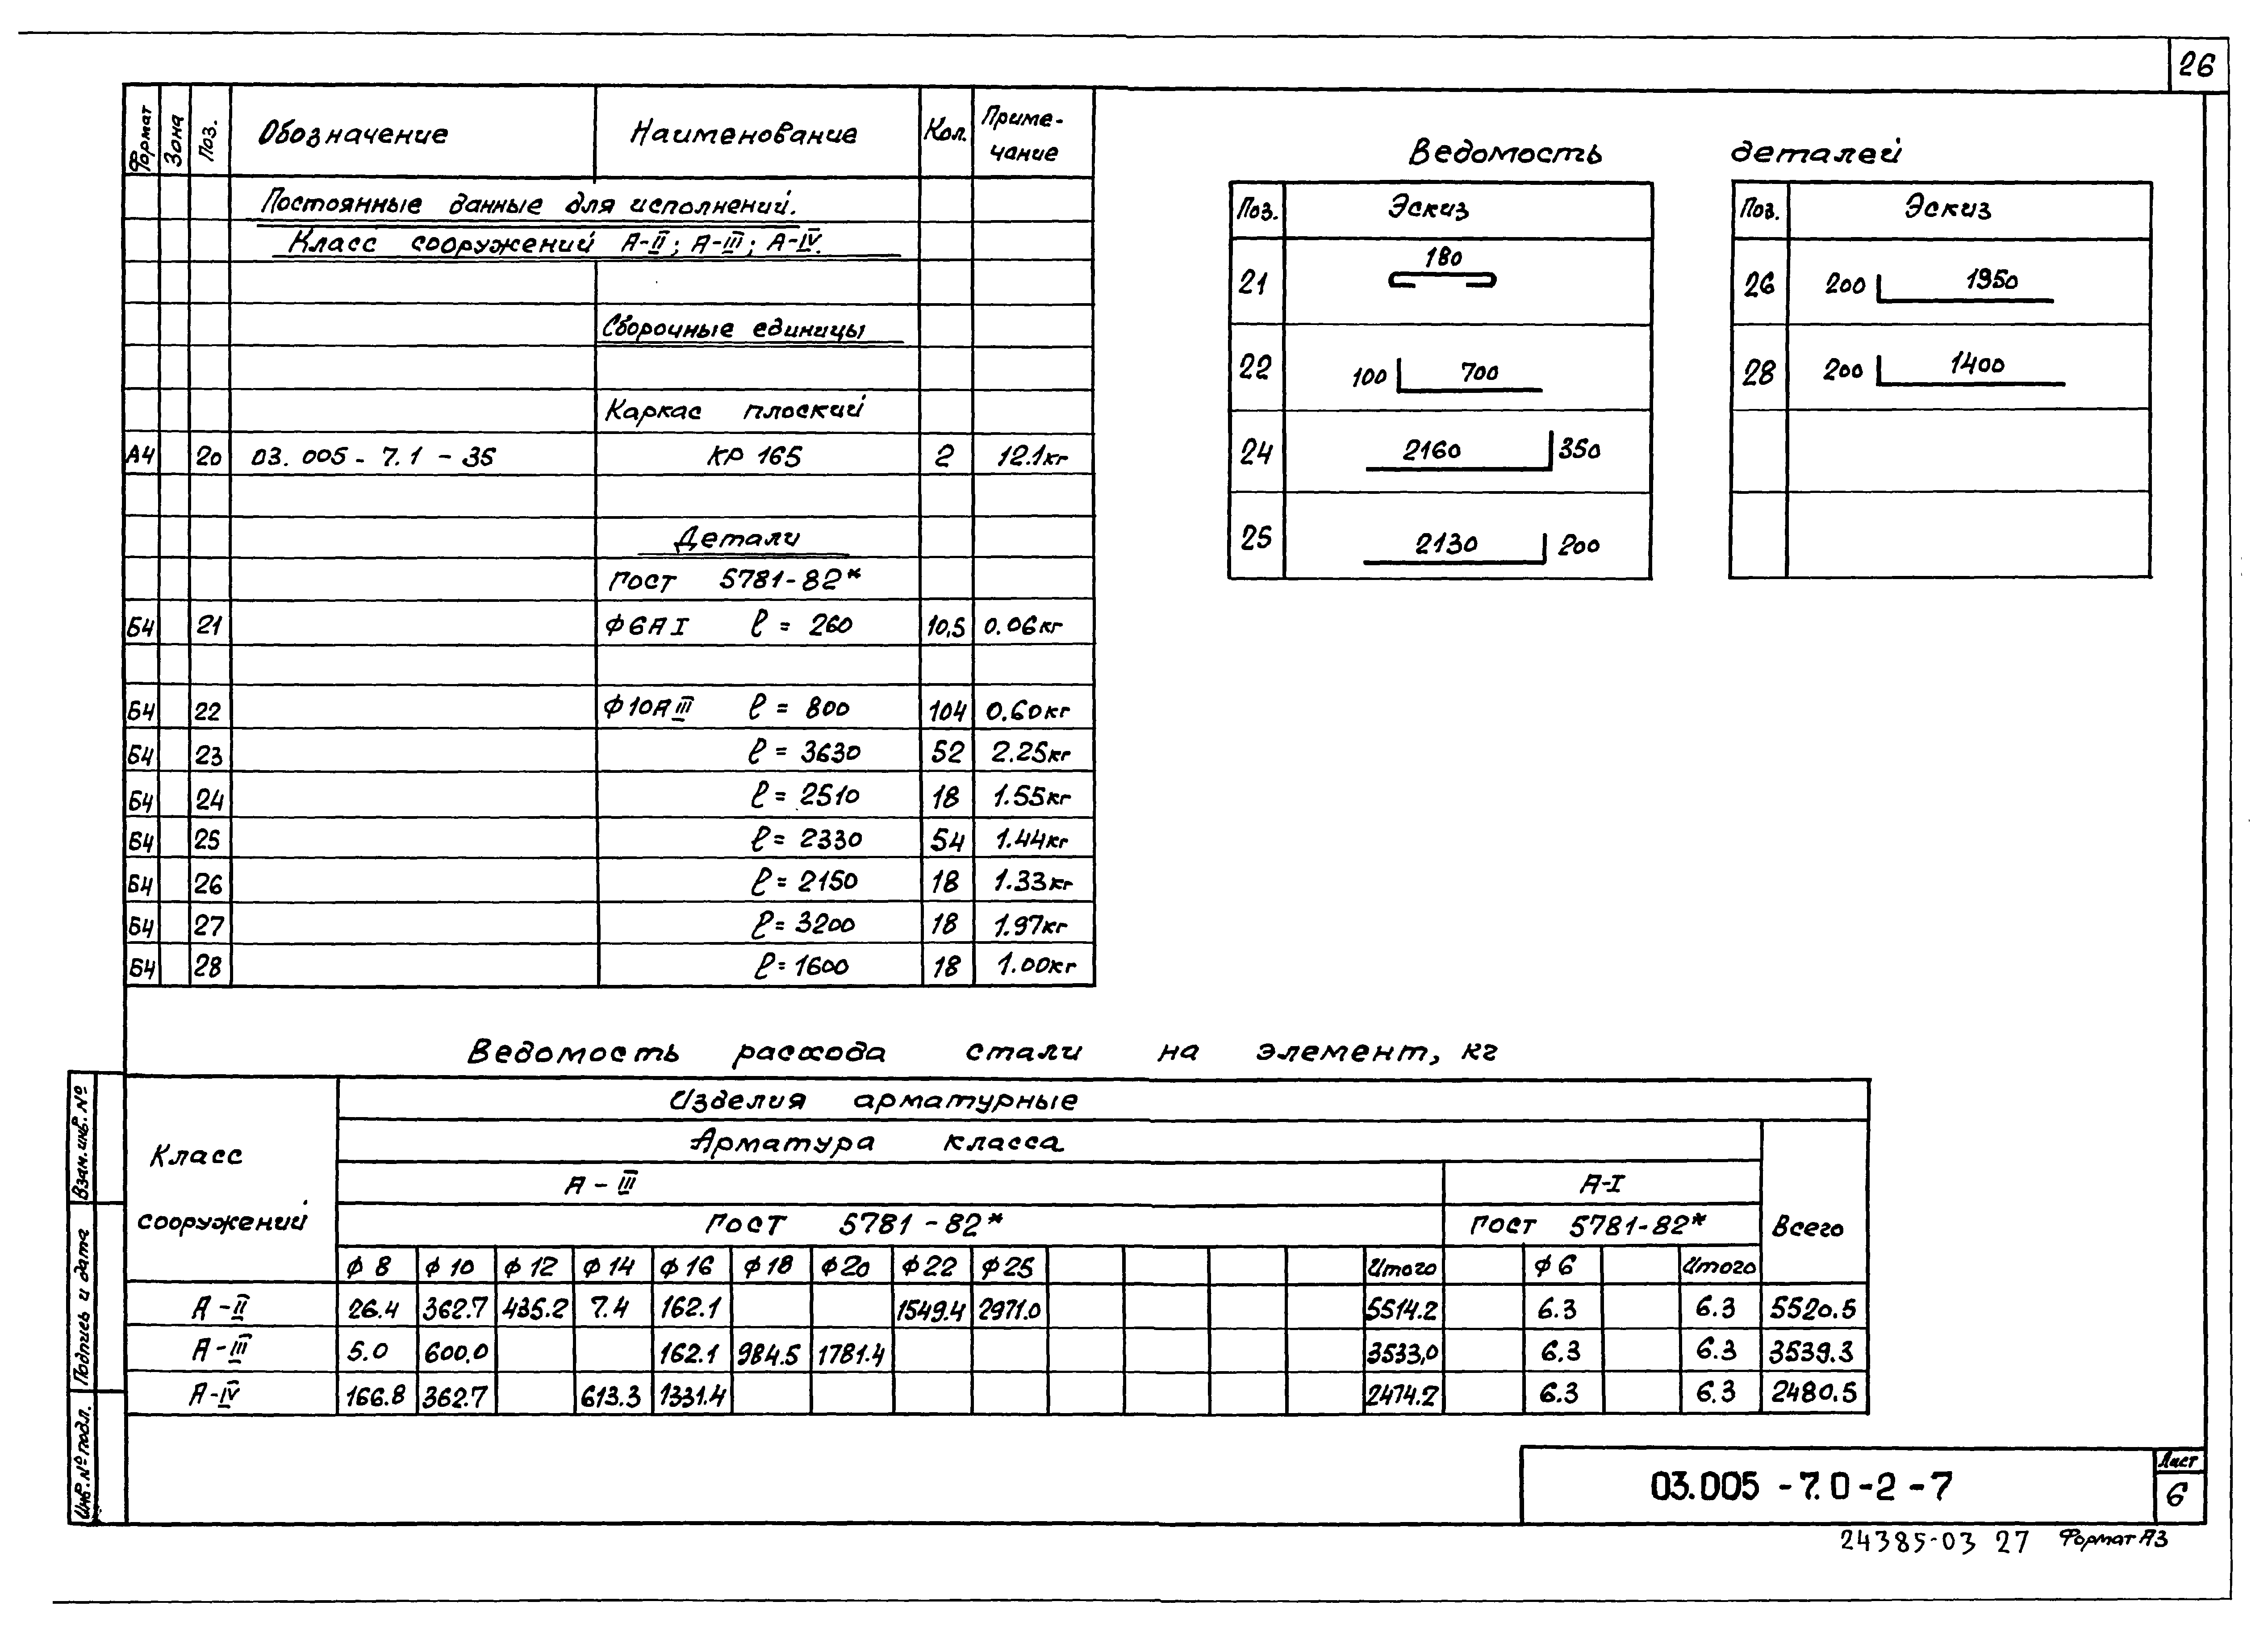 26
Формат Зона Поз. Обозначение Наименование Кол. Приме-
чание
Постоянные данные для исполнений.
Класс сооружений А-II; А-III; А-IV.
Сборочные единицы
Каркас плоский
А4 20 03.005-7.1-35 КР 165 2 12.1кг
Детали
Гост 5781-82*
Б4 21 Ф6АI ℓ = 260 10,5 0.06кг
Б4 22 Ф10АIII ℓ = 800 104 0.60кг
Б4 23 ℓ = 3630 52 2.25кг
Б4 24 ℓ = 2510 18 1.55кг
Б4 25 ℓ = 2330 54 1.44кг
Б4 26 ℓ = 2150 18 1.33кг
Б4 27 ℓ = 3200 18 1.97кг
Б4 28 ℓ = 1600 18 1.00кг
Ведомость деталей
Поз. Эскиз Поз. Эскиз
21 180 26 200 1950
22 100 700 28 200 1400
24 2160 350
25 2130 200
Ведомость расхода стали на элемент, кг
Класс сооружений Изделия арматурные
Арматура класса Всего
А-III А-I
Гост 5781-82* Гост 5781-82*
ф8 ф10 ф12 ф14 ф16 ф18 ф20 ф22 ф25 Итого ф6 Итого
А-II 26.4 362.7 435.2 7.4 162.1 1549.4 2971.0 5514.2 6.3 6.3 5520.5
А-III 5.0 600.0 162.1 984.5 1781.4 3533,0 6.3 6.3 3539.3
А-IV 166.8 362.7 613.3 1331.4 2474.2 6.3 6.3 2480.5
Взам. инв. №
Подпись и дата
Инв. № подл.
03.005-7.0-2-7
Лист
6
24385-03 27 Формат А3